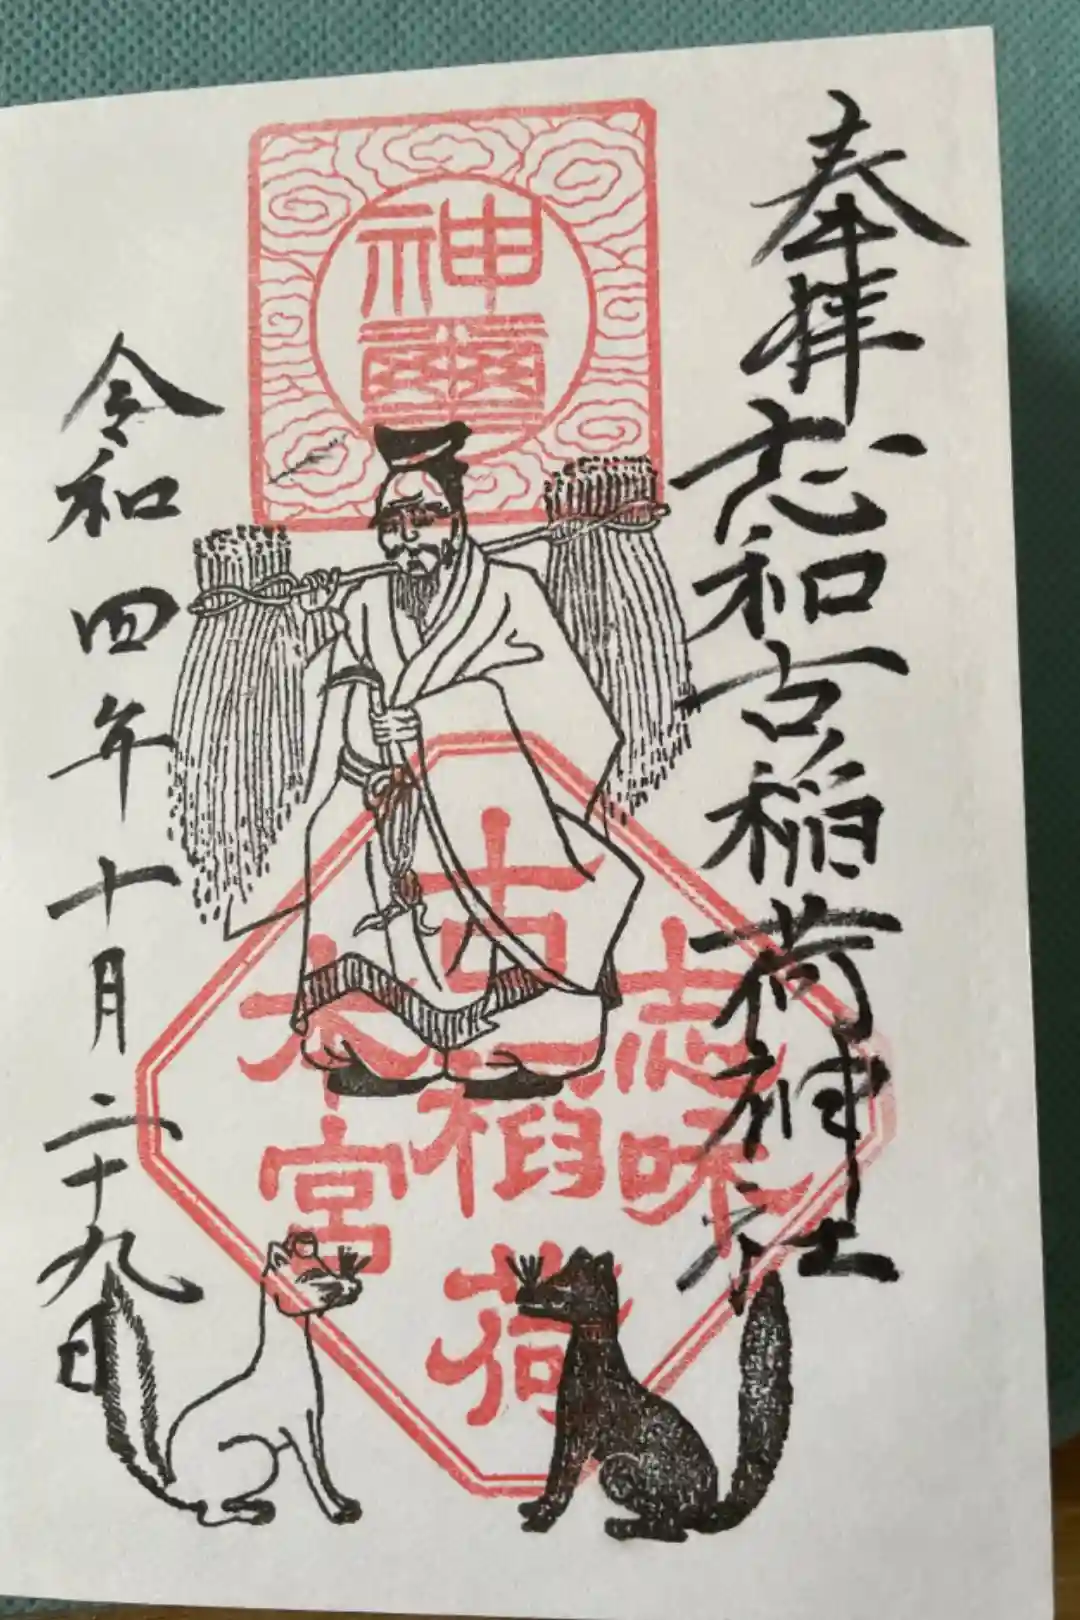 奉拝志和古稲荷神社
神璽
志味
古稲荷
大宮
令和四年十月二十九日